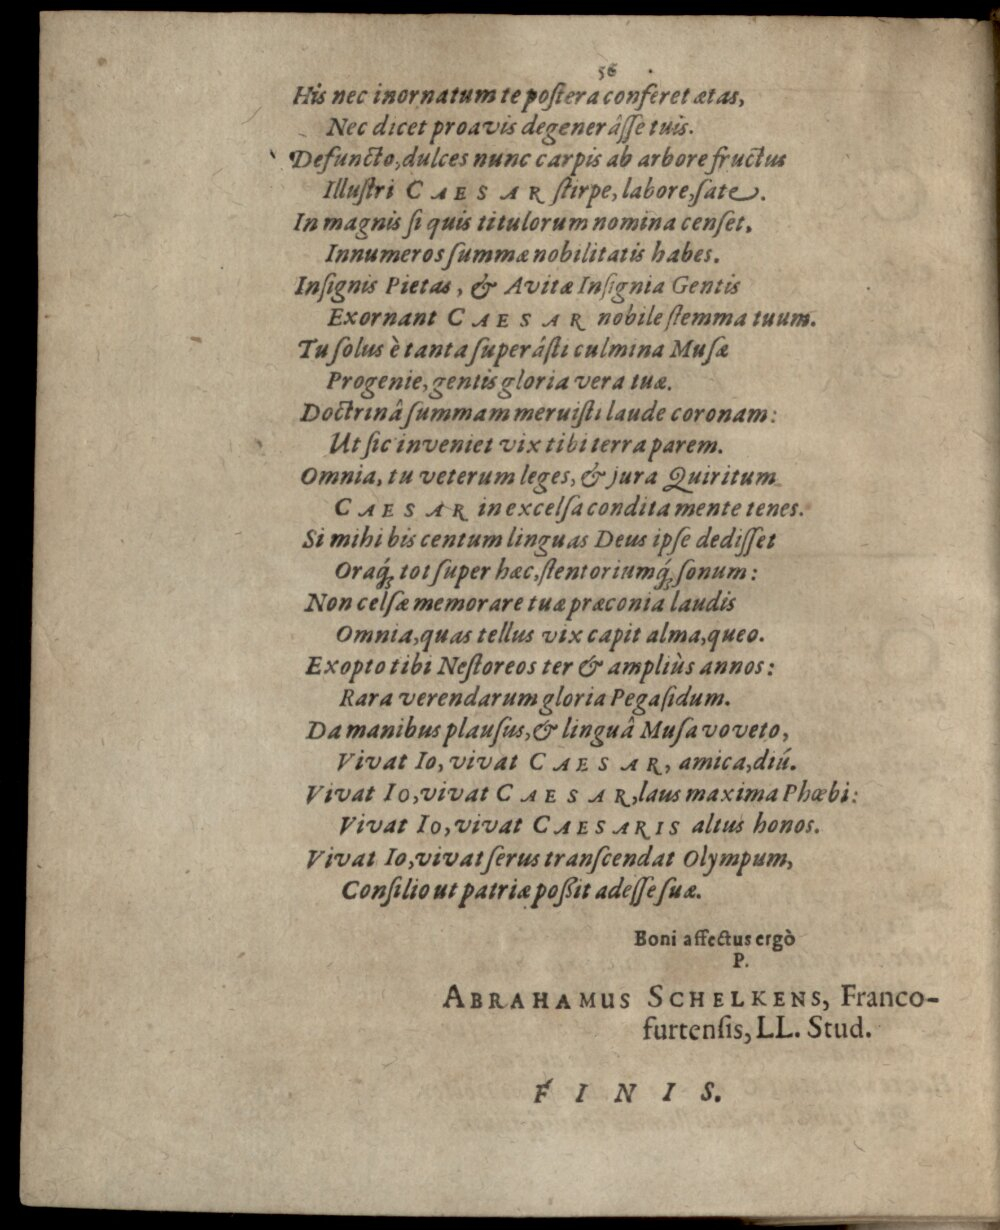 56
His nec inornatum te postera conferet ætas,
Nec dicet proavis degenerâsse tuis.
Defuncto, dulces nunc carpis ab arbore fructus
Illustri CAESAR stirpe, labore, sate.
In magnis si quis titulorum nomina censet,
Innumeros summæ nobilitatis habes.
Insignis Pietas, & Avitæ Insignia Gentis
Exornant CAESAR nobile stemma tuum.
Tu solus è tanta superâsti culmina Musæ
Progenie, gentis gloria vera tuæ.
Doctrinâ summam meruisti laude coronam:
Ut sic inveniet vix tibi terra parem.
Omnia, tu veterum leges, & jura Quiritum
CAESAR in excelsa condita mente tenes.
Si mihi bis centum linguas Deus ipse dedisset
Oraq́; tot super hæc, stentoriumq́; sonum:
Non celsæ memorare tuæ præconia laudis
Omnia, quas tellus vix capit alma, queo.
Exopto tibi Nestoreos ter & ampliùs annos:
Rara verendarum gloria Pegasidum.
Da manibus plausus, & linguâ Musa voveto,
Vivat Io, vivat CAESAR, amica, diú.
Vivat Io, vivat CAESAR, laus maxima Phœbi:
Vivat Io, vivat CAESARIS altus honos.
Vivat Io, vivat serus transcendat Olympum,
Consilio ut patriæ poßit adesse suæ.
Boni affectus ergò
P.
ABRAHAMUS SCHELKENS, Franco-
furtensis, LL. Stud.
FINIS.